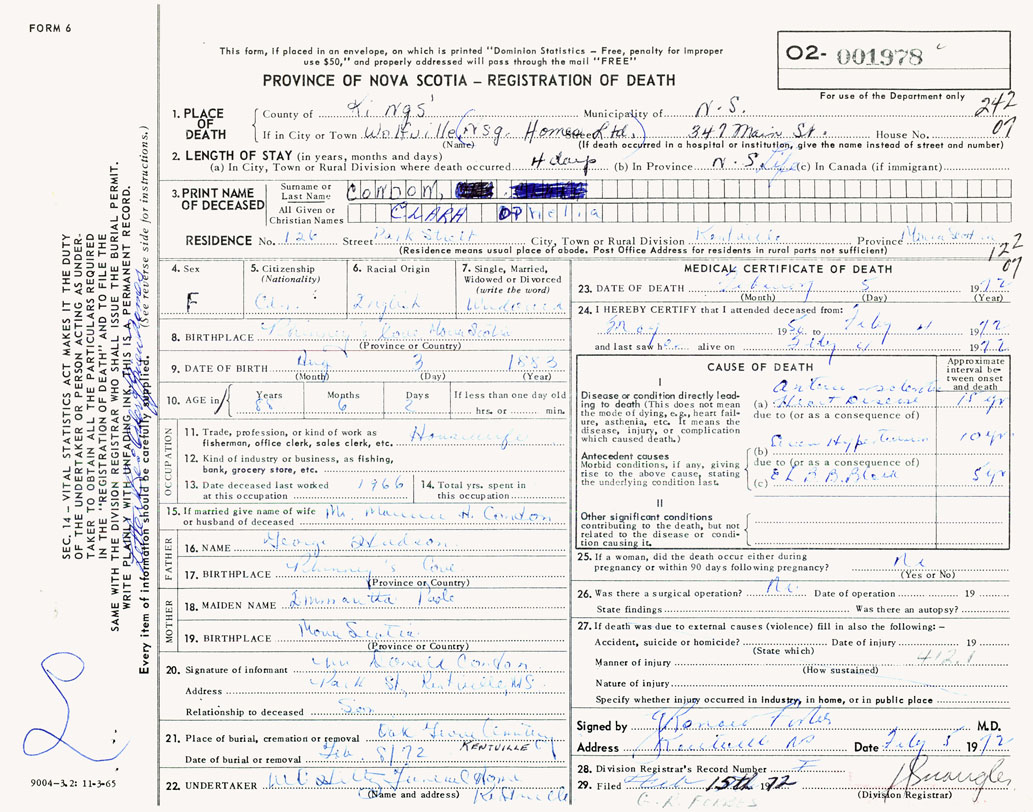 FORM 6
This form, if placed in an envelope, on which is printed "Dominion Statistics – Free, penalty for improper
use $50," and properly addressed will pass through the mail "FREE"
PROVINCE OF NOVA SCOTIA – REGISTRATION OF DEATH
O2- 001978
For use of the Department only
242
07
1. PLACE OF DEATH
County of Kings Municipality of N.S.
If in City or Town Wolfville Nsg. Homes Ltd. 347 Main St. House No.
(Name) (If death occurred in a hospital or institution, give the name instead of street and number)
2. LENGTH OF STAY (in years, months and days)
(a) In City, Town or Rural Division where death occurred 4 days (b) In Province N.S. Life (c) In Canada (if immigrant)
3. PRINT NAME OF DECEASED
Surname or Last Name CONDON,
All Given or Christian Names CLARA OPHelia
RESIDENCE No. 126 Street Park Street City, Town or Rural Division Kentville Province Nova Scotia
(Residence means usual place of abode. Post Office Address for residents in rural parts not sufficient)
122
07
4. Sex
F
5. Citizenship
(Nationality)
Cdn.
6. Racial Origin
English
7. Single, Married,
Widowed or Divorced
(write the word)
Widowed
8. BIRTHPLACE Phinney's Cove Nova Scotia
(Province or Country)
9. DATE OF BIRTH Aug 3 1883
(Month) (Day) (Year)
10. AGE in
Years Months Days If less than one day old
88 6 2 hrs. or min.
OCCUPATION
11. Trade, profession, or kind of work as
fisherman, office clerk, sales clerk, etc. Housewife
12. Kind of industry or business, as fishing,
bank, grocery store, etc.
13. Date deceased last worked
at this occupation 1966
14. Total yrs. spent in
this occupation
15. If married give name of wife
or husband of deceased Mr. Maurice H. Condon
FATHER
16. NAME George Hudson
17. BIRTHPLACE Phinney's Cove
(Province or Country)
MOTHER
18. MAIDEN NAME
19. BIRTHPLACE Nova Scotia
(Province or Country)
20. Signature of informant Donald Condon
Address Park St, Kentville, NS
Relationship to deceased Son
21. Place of burial, cremation or removal Oak Grove Cemetery
KENTVILLE
Date of burial or removal Feb. 8/72
22. UNDERTAKER Funeral Home
(Name and address) Kentville
MEDICAL CERTIFICATE OF DEATH
23. DATE OF DEATH February 5 1972
(Month) (Day) (Year)
24. I HEREBY CERTIFY that I attended deceased from:
May 1950 to Feby 4 1972
and last saw her alive on Feby 4 1972
CAUSE OF DEATH
Approximate
interval be-
tween onset
and death
I
Disease or condition directly lead-
ing to death (This does not mean
the mode of dying, e.g., heart fail-
ure, asthenia, etc. It means the
disease, injury, or complication
which caused death.)
Arteriosclerotic
(a) Heart Disease 15 yr
due to (or as a consequence of)
Antecedent causes
Morbid conditions, if any, giving
rise to the above cause, stating
the underlying condition last.
(b) Hypertension 10 yr
due to (or as a consequence of)
(c) L B B Block 5 yr
II
Other significant conditions
contributing to the death, but not
related to the disease or condi-
tion causing it.
25. If a woman, did the death occur either during
pregnancy or within 90 days following pregnancy? No
(Yes or No)
26. Was there a surgical operation? No Date of operation 19
State findings Was there an autopsy?
27. If death was due to external causes (violence) fill in also the following: –
Accident, suicide or homicide? Date of injury 19
(State which)
412.1
Manner of injury
(How sustained)
Nature of injury
Specify whether injury occurred in Industry, in home, or in public place
Signed by M.D.
Address Kentville NS Date Feby 5 1972
28. Division Registrar's Record Number
29. Filed Feb 15th 1972
(Division Registrar)
SEC. 14 – VITAL STATISTICS ACT MAKES IT THE DUTY
OF THE UNDERTAKER OR PERSON ACTING AS UNDER-
TAKER TO OBTAIN ALL THE PARTICULARS REQUIRED
IN THE "REGISTRATION OF DEATH" AND TO FILE THE
SAME WITH THE DIVISION REGISTRAR WHO SHALL ISSUE THE BURIAL PERMIT.
WRITE PLAINLY WITH UNFADING INK, THIS IS A PERMANENT RECORD.
Every item of information should be carefully supplied. (See reverse side for instructions.)
9004-3.2: 11-3-65